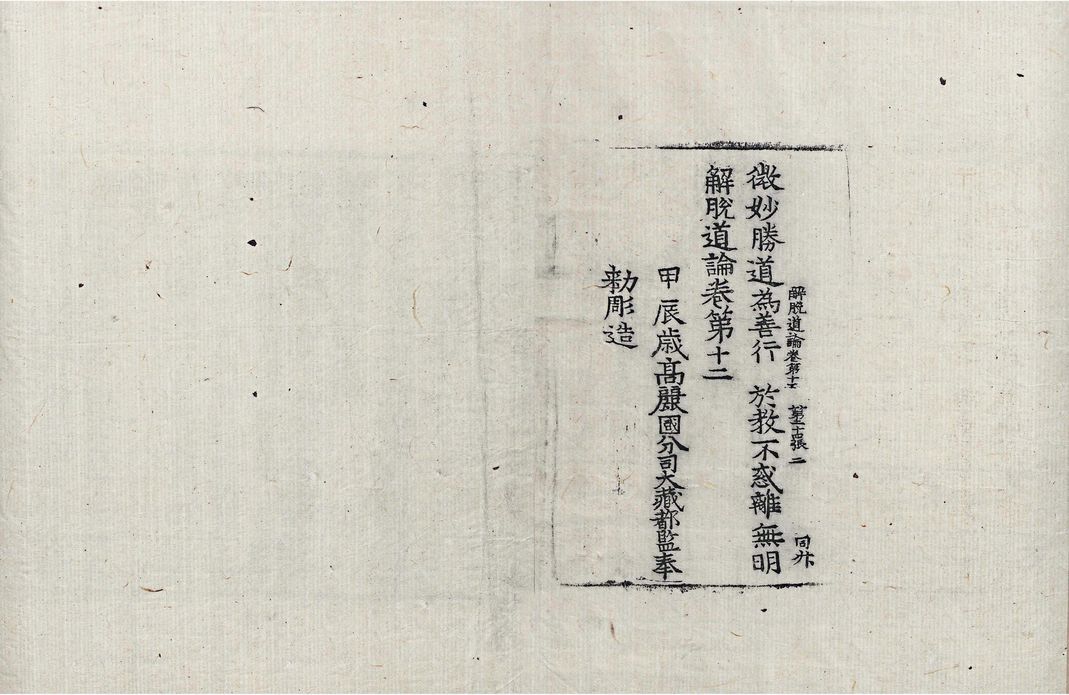 解脫道論卷第十二 第二十張 同卞
微妙勝道為善行 於教不惑離無明
解脫道論卷第十二
甲辰歲高麗國分司大藏都監奉
勅彫造